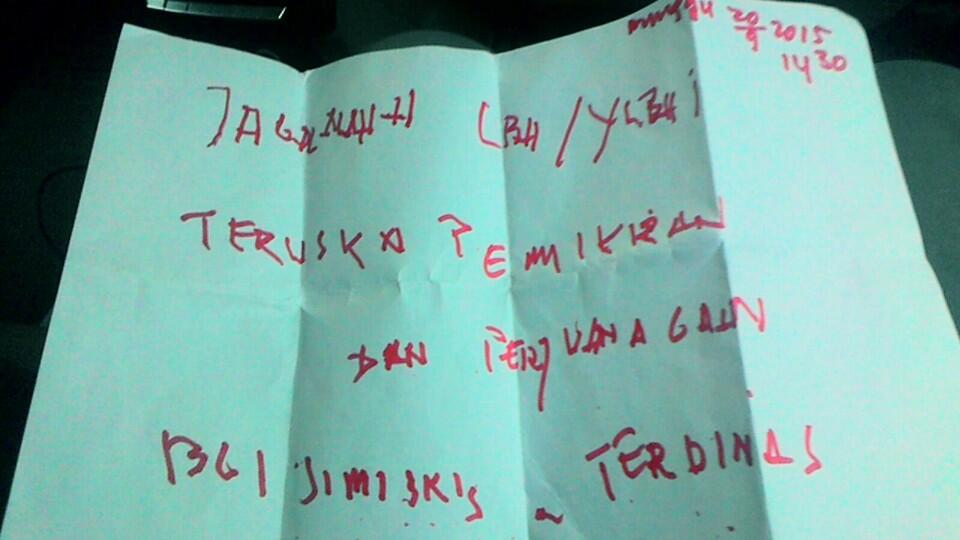 minggu 20/9 2015
1430
JAGALAH LBH/YLBHI
TERUSKA PEMIKIRAN
DAN PERJUANAGAAN
BGI SIMISKIS - TERDINAS